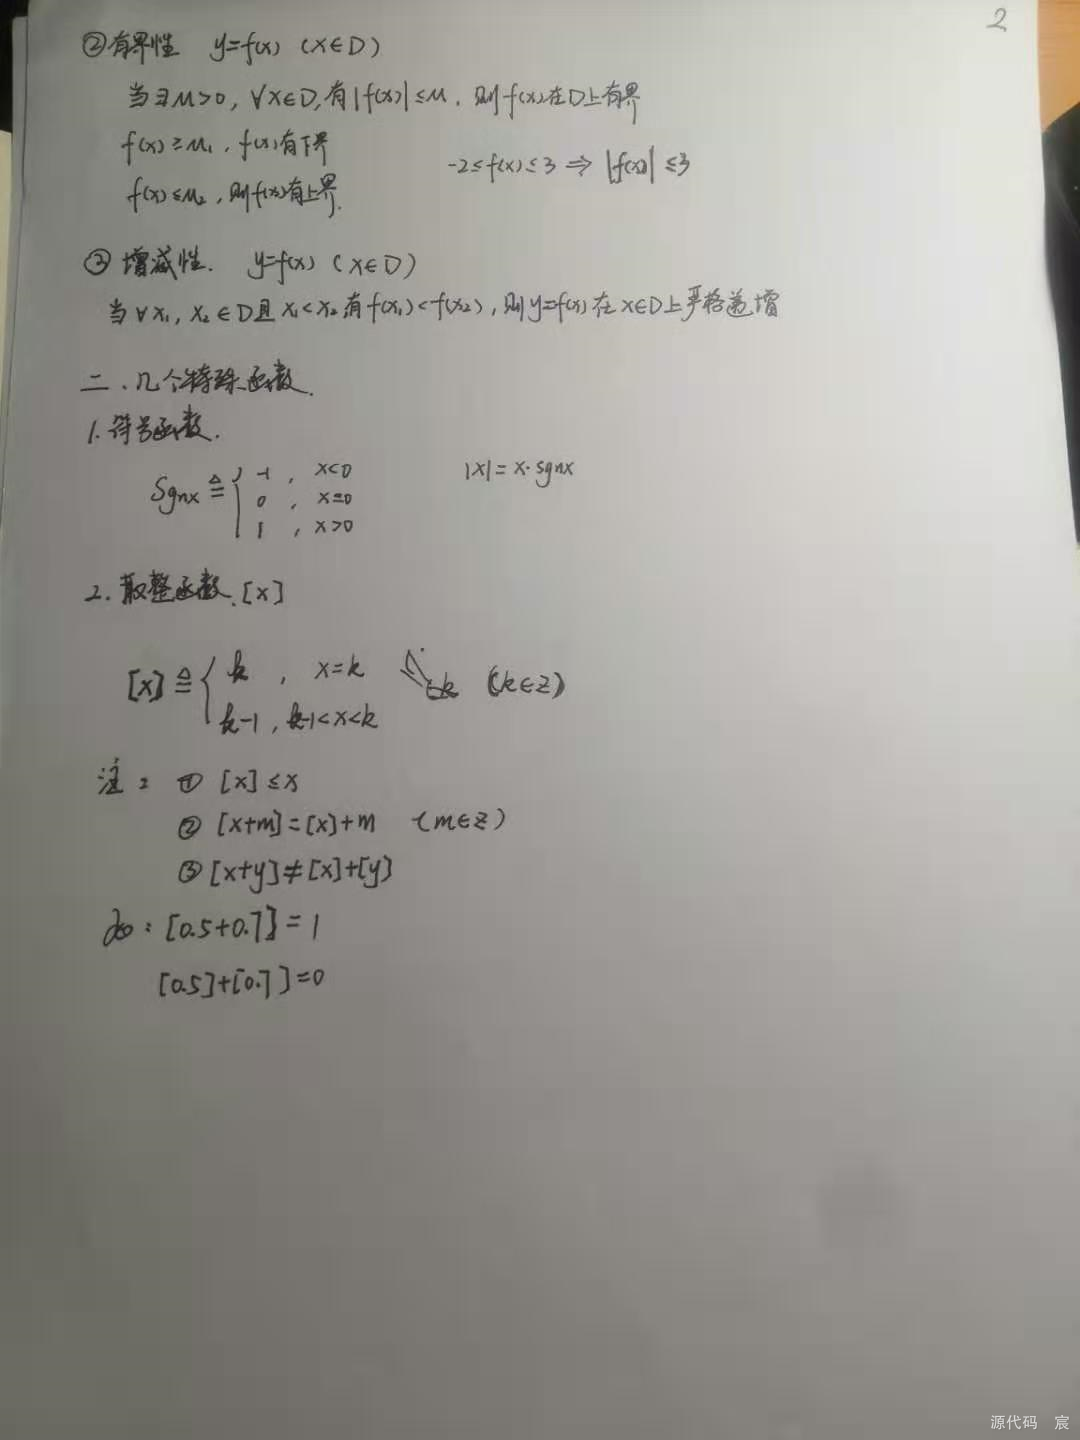 2
②有界性 y=f(x) (x∈D)
当∃M>0, ∀x∈D,有|f(x)|≤M, 则f(x)在D上有界
f(x)≥M₁, f(x)有下界
-2≤f(x)≤3 ⇒ |f(x)|≤3
f(x)≤M₂, 则f(x)有上界.
③ 增减性. y=f(x) (x∈D)
当∀x₁, x₂∈D且x₁<x₂有f(x₁)<f(x₂), 则y=f(x)在x∈D上严格递增
二、几个特殊函数.
1.符号函数.
Sgnx ≜ { -1, x<0
0, x=0
1, x>0
|x|=x·sgnx
2.取整函数.[x]
[x] ≜ { k, x=k
k-1, k-1<x<k
(k∈Z)
注: ① [x]≤x
② [x+m]=[x]+m (m∈Z)
③ [x+y]≠[x]+[y]
如: [0.5+0.7]=1
[0.5]+[0.7]=0
源代码 宸